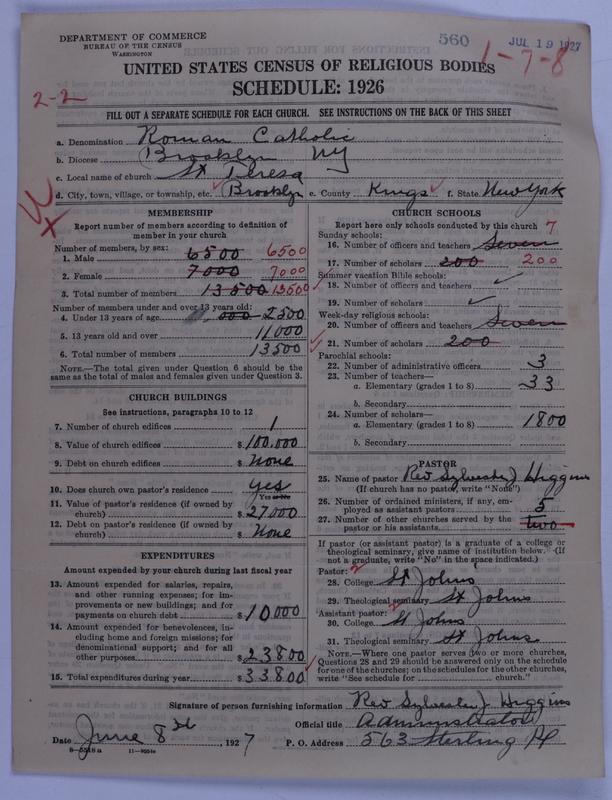 DEPARTMENT OF COMMERCE
BUREAU OF THE CENSUS
WASHINGTON
560
JUL 19 1927
1-7-8
UNITED STATES CENSUS OF RELIGIOUS BODIES
SCHEDULE: 1926
2-2
FILL OUT A SEPARATE SCHEDULE FOR EACH CHURCH. SEE INSTRUCTIONS ON THE BACK OF THIS SHEET
a. Denomination Roman Catholic
b. Diocese Brooklyn NY
c. Local name of church St Teresa
d. City, town, village, or township, etc. Brooklyn e. County Kings f. State New York
MEMBERSHIP
Report number of members according to definition of
member in your church
Number of members, by sex:
1. Male 6500 6500
2. Female 7000 7000
3. Total number of members 13500 13500
Number of members under and over 13 years old:
4. Under 13 years of age 2500
5. 13 years old and over 11000
6. Total number of members 13500
NOTE.—The total given under Question 6 should be the
same as the total of males and females given under Question 3.
CHURCH BUILDINGS
See instructions, paragraphs 10 to 12
7. Number of church edifices 1
8. Value of church edifices $100,000
9. Debt on church edifices $ None
10. Does church own pastor's residence yes
Yes or No
11. Value of pastor's residence (if owned by
church) $27000
12. Debt on pastor's residence (if owned by
church) $ None
EXPENDITURES
Amount expended by your church during last fiscal year
13. Amount expended for salaries, repairs,
and other running expenses; for im-
provements or new buildings; and for
payments on church debt $10,000
14. Amount expended for benevolences, in-
cluding home and foreign missions; for
denominational support; and for all
other purposes $23800
15. Total expenditures during year $33800
CHURCH SCHOOLS
Report here only schools conducted by this church
Sunday schools: 7
16. Number of officers and teachers Seven
17. Number of scholars 200 200
Summer vacation Bible schools:
18. Number of officers and teachers
19. Number of scholars
Week-day religious schools:
20. Number of officers and teachers Seven
21. Number of scholars 200
Parochial schools:
22. Number of administrative officers 3
23. Number of teachers—
a. Elementary (grades 1 to 8) 33
b. Secondary
24. Number of scholars—
a. Elementary (grades 1 to 8) 1800
b. Secondary
PASTOR
25. Name of pastor Rev Sylvester J Higgins
(If church has no pastor, write "None")
26. Number of ordained ministers, if any, em-
ployed as assistant pastors 5
27. Number of other churches served by the
pastor or his assistants two
If pastor (or assistant pastor) is a graduate of a college or
theological seminary, give name of institution below. (If
not a graduate, write "No" in the space indicated.)
Pastor: 2
28. College St Johns
29. Theological seminary St Johns
Assistant pastor: 2
30. College St Johns
31. Theological seminary St Johns
NOTE.—Where one pastor serves two or more churches,
Questions 28 and 29 should be answered only on the schedule
for one of the churches; on the schedules for the other churches,
write "See schedule for church."
Signature of person furnishing information Rev Sylvester J Higgins
Official title Administrator
Date June 8th 1927 P. O. Address 563 Sterling Pl
8-5518 a 11-9554a